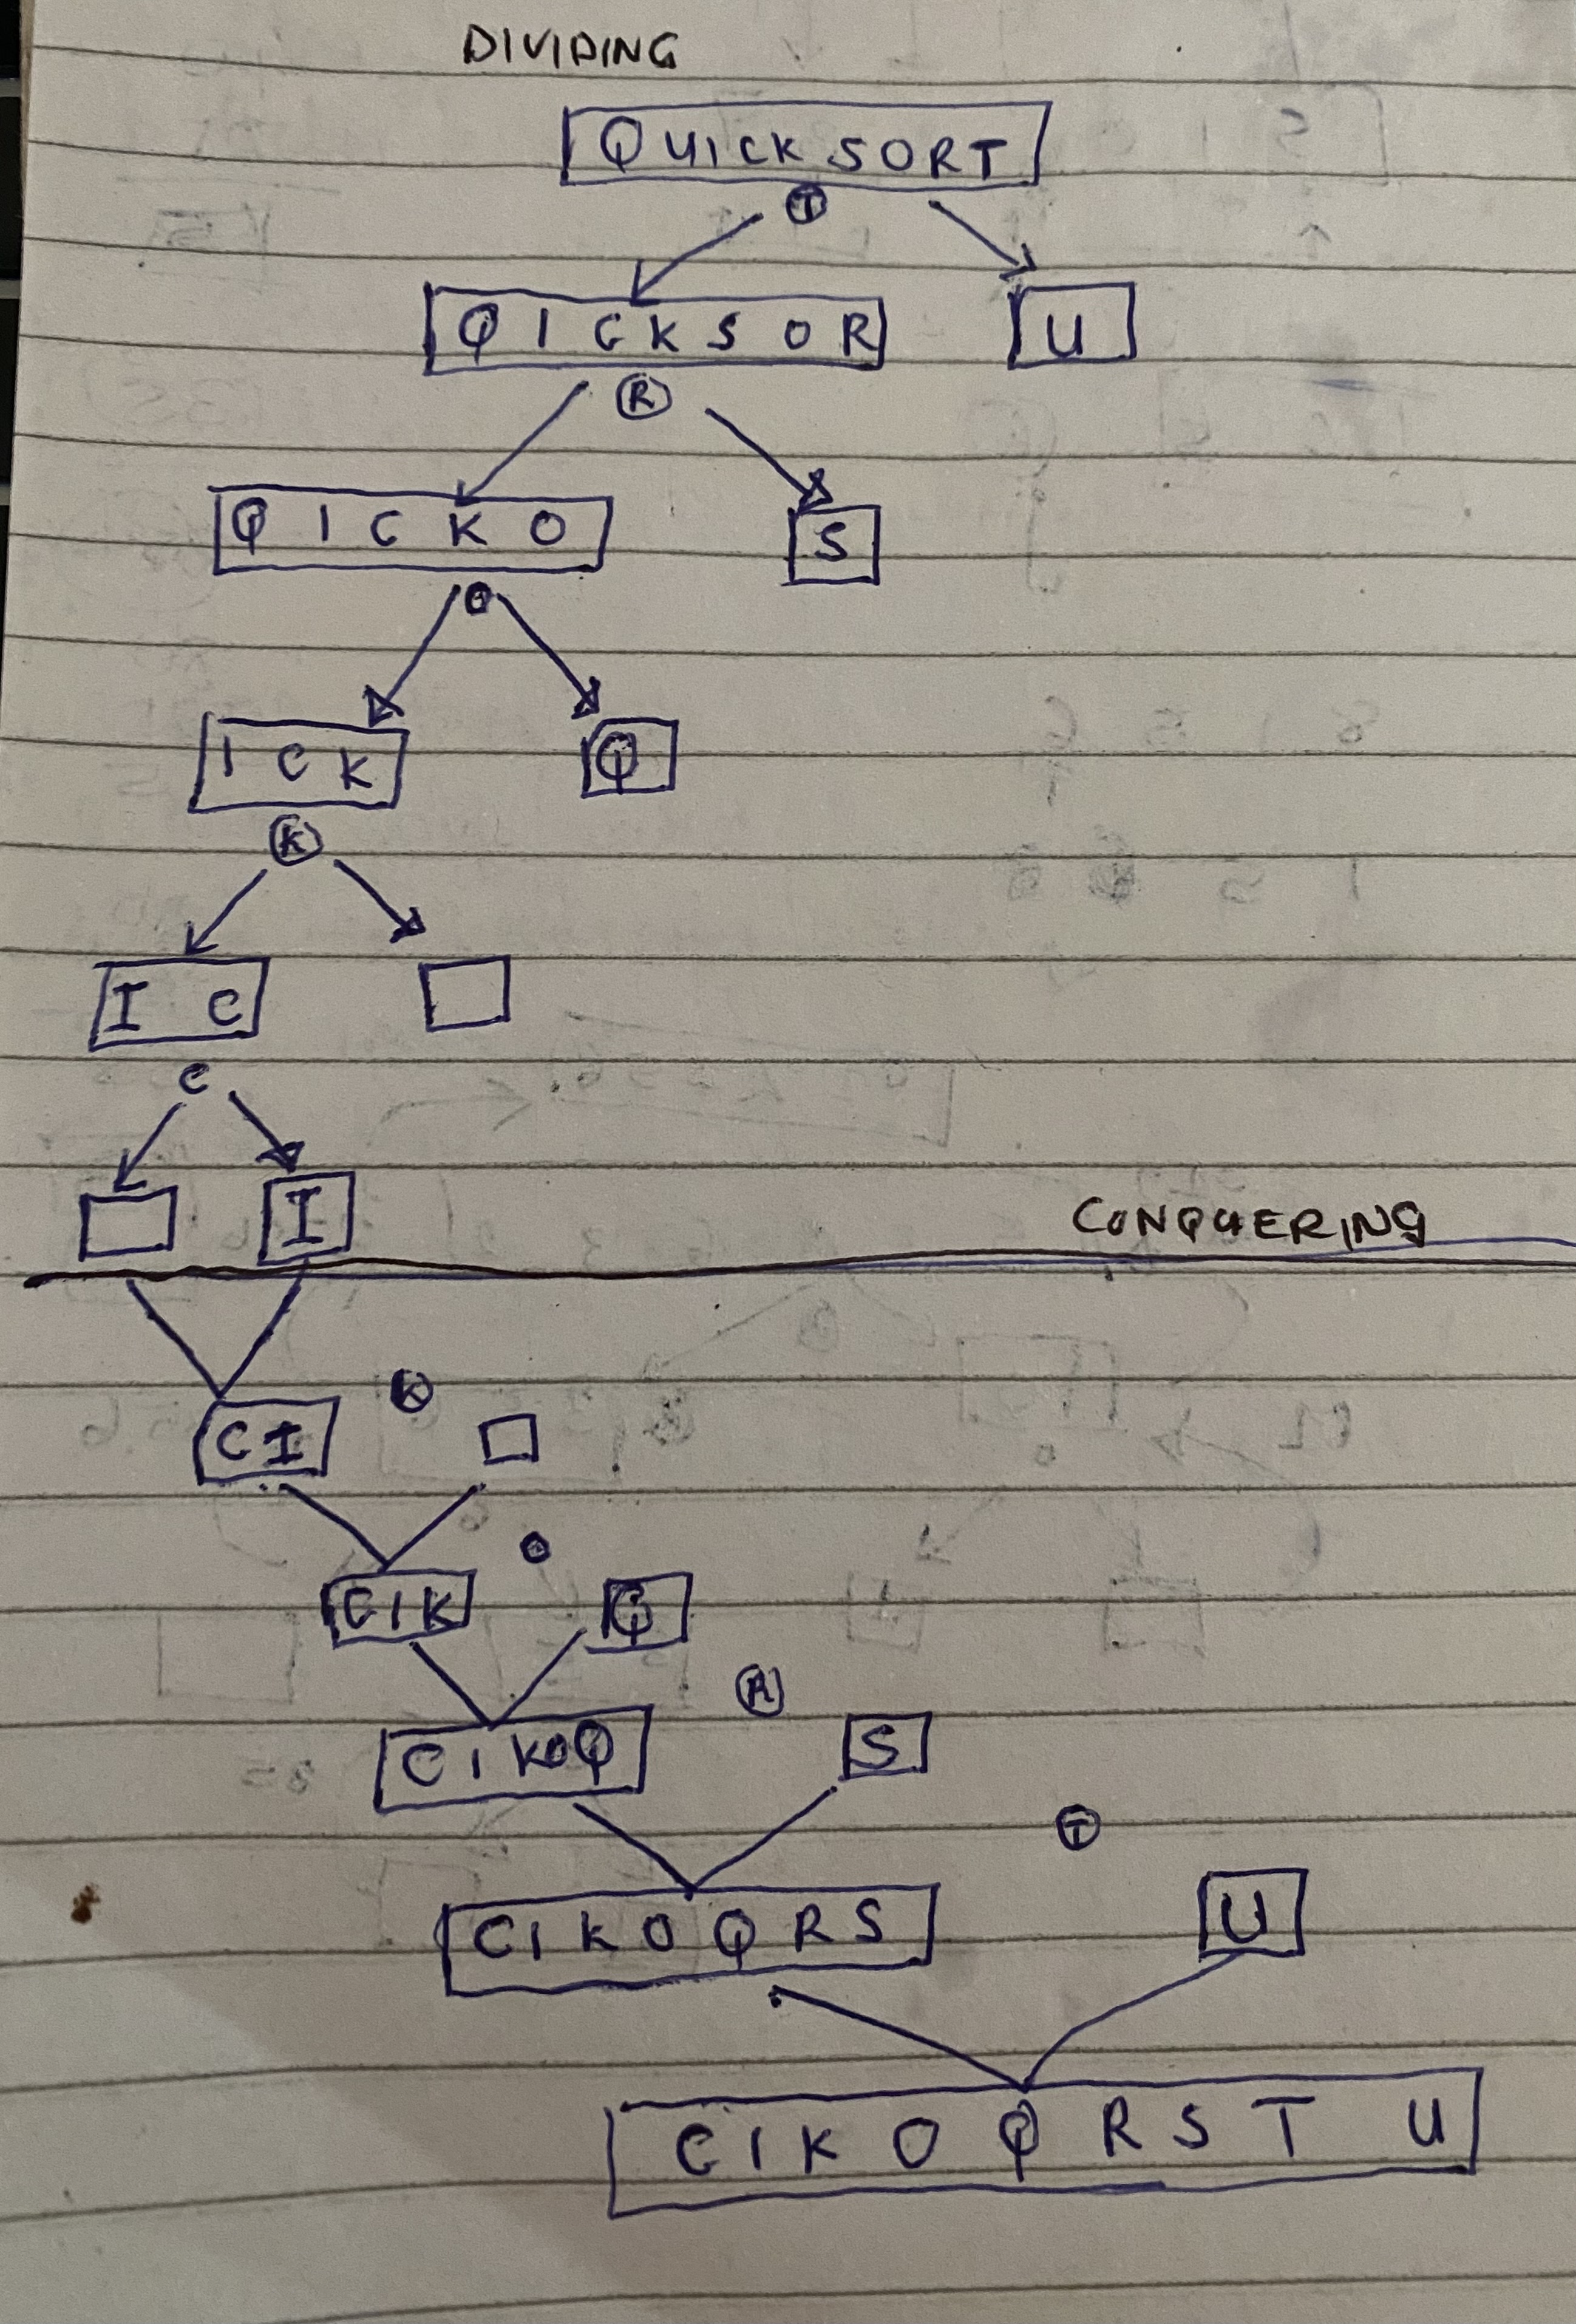 DIVIDING
QUICKSORT
T
QICKSOR U
R
QICKO S
O
ICK Q
K
I C
C
I
CONQUERING
K
CI
O
CIK Q
R
CIKOQ S
T
CIKOQRS U
CIKOQRST U